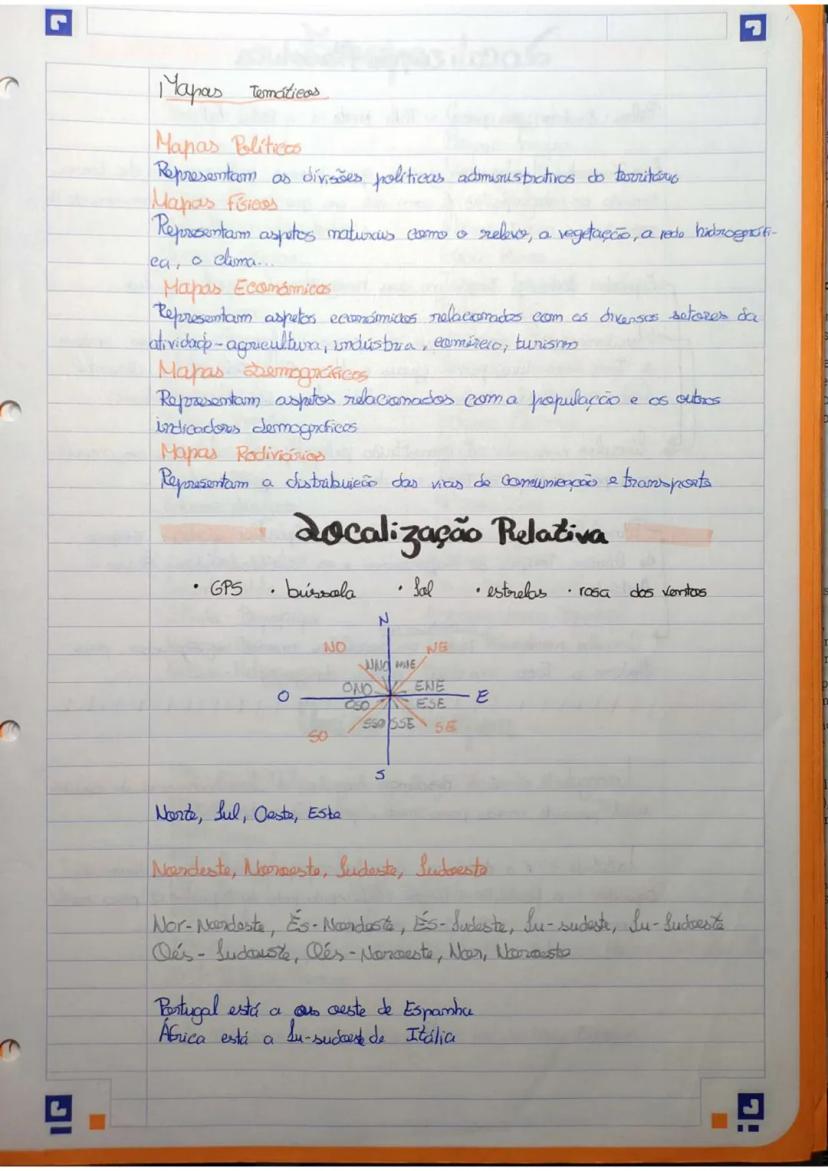 Mapas Temáticos
Mapas Políticos
Representam as divisões políticas administrativas do território
Mapas Físicos
Representam aspetos naturais como o relevo, a vegetação, a rede hidrográfi-
ca, o clima...
Mapas Económicos
Representam aspetos económicos relacionados com os diversos setores da
atividade - agricultura, indústria, comércio, turismo
Mapas Demográficos
Representam aspetos relacionados com a população e os outros
indicadores demográficos
Mapas Rodiviários
Representam a distribuição das vias de comunicação e transporte
Localização Relativa
• GPS • bússola • Sol • estrelas • rosa dos ventos
N
NO NE
NNO NNE
ONO ENE
O E
OSO ESE
SSO SSE
SO SE
S
Norte, Sul, Oeste, Este
Nordeste, Noroeste, Sudeste, Sudoeste
Nor-Nordeste, És-Nordeste, És-Sudeste, Su-sudeste, Su-Sudoeste
Oés-Sudoeste, Oés-Noroeste, Nor, Noroeste
Portugal está a oeste de Espanha
África está a Su-sudoeste de Itália